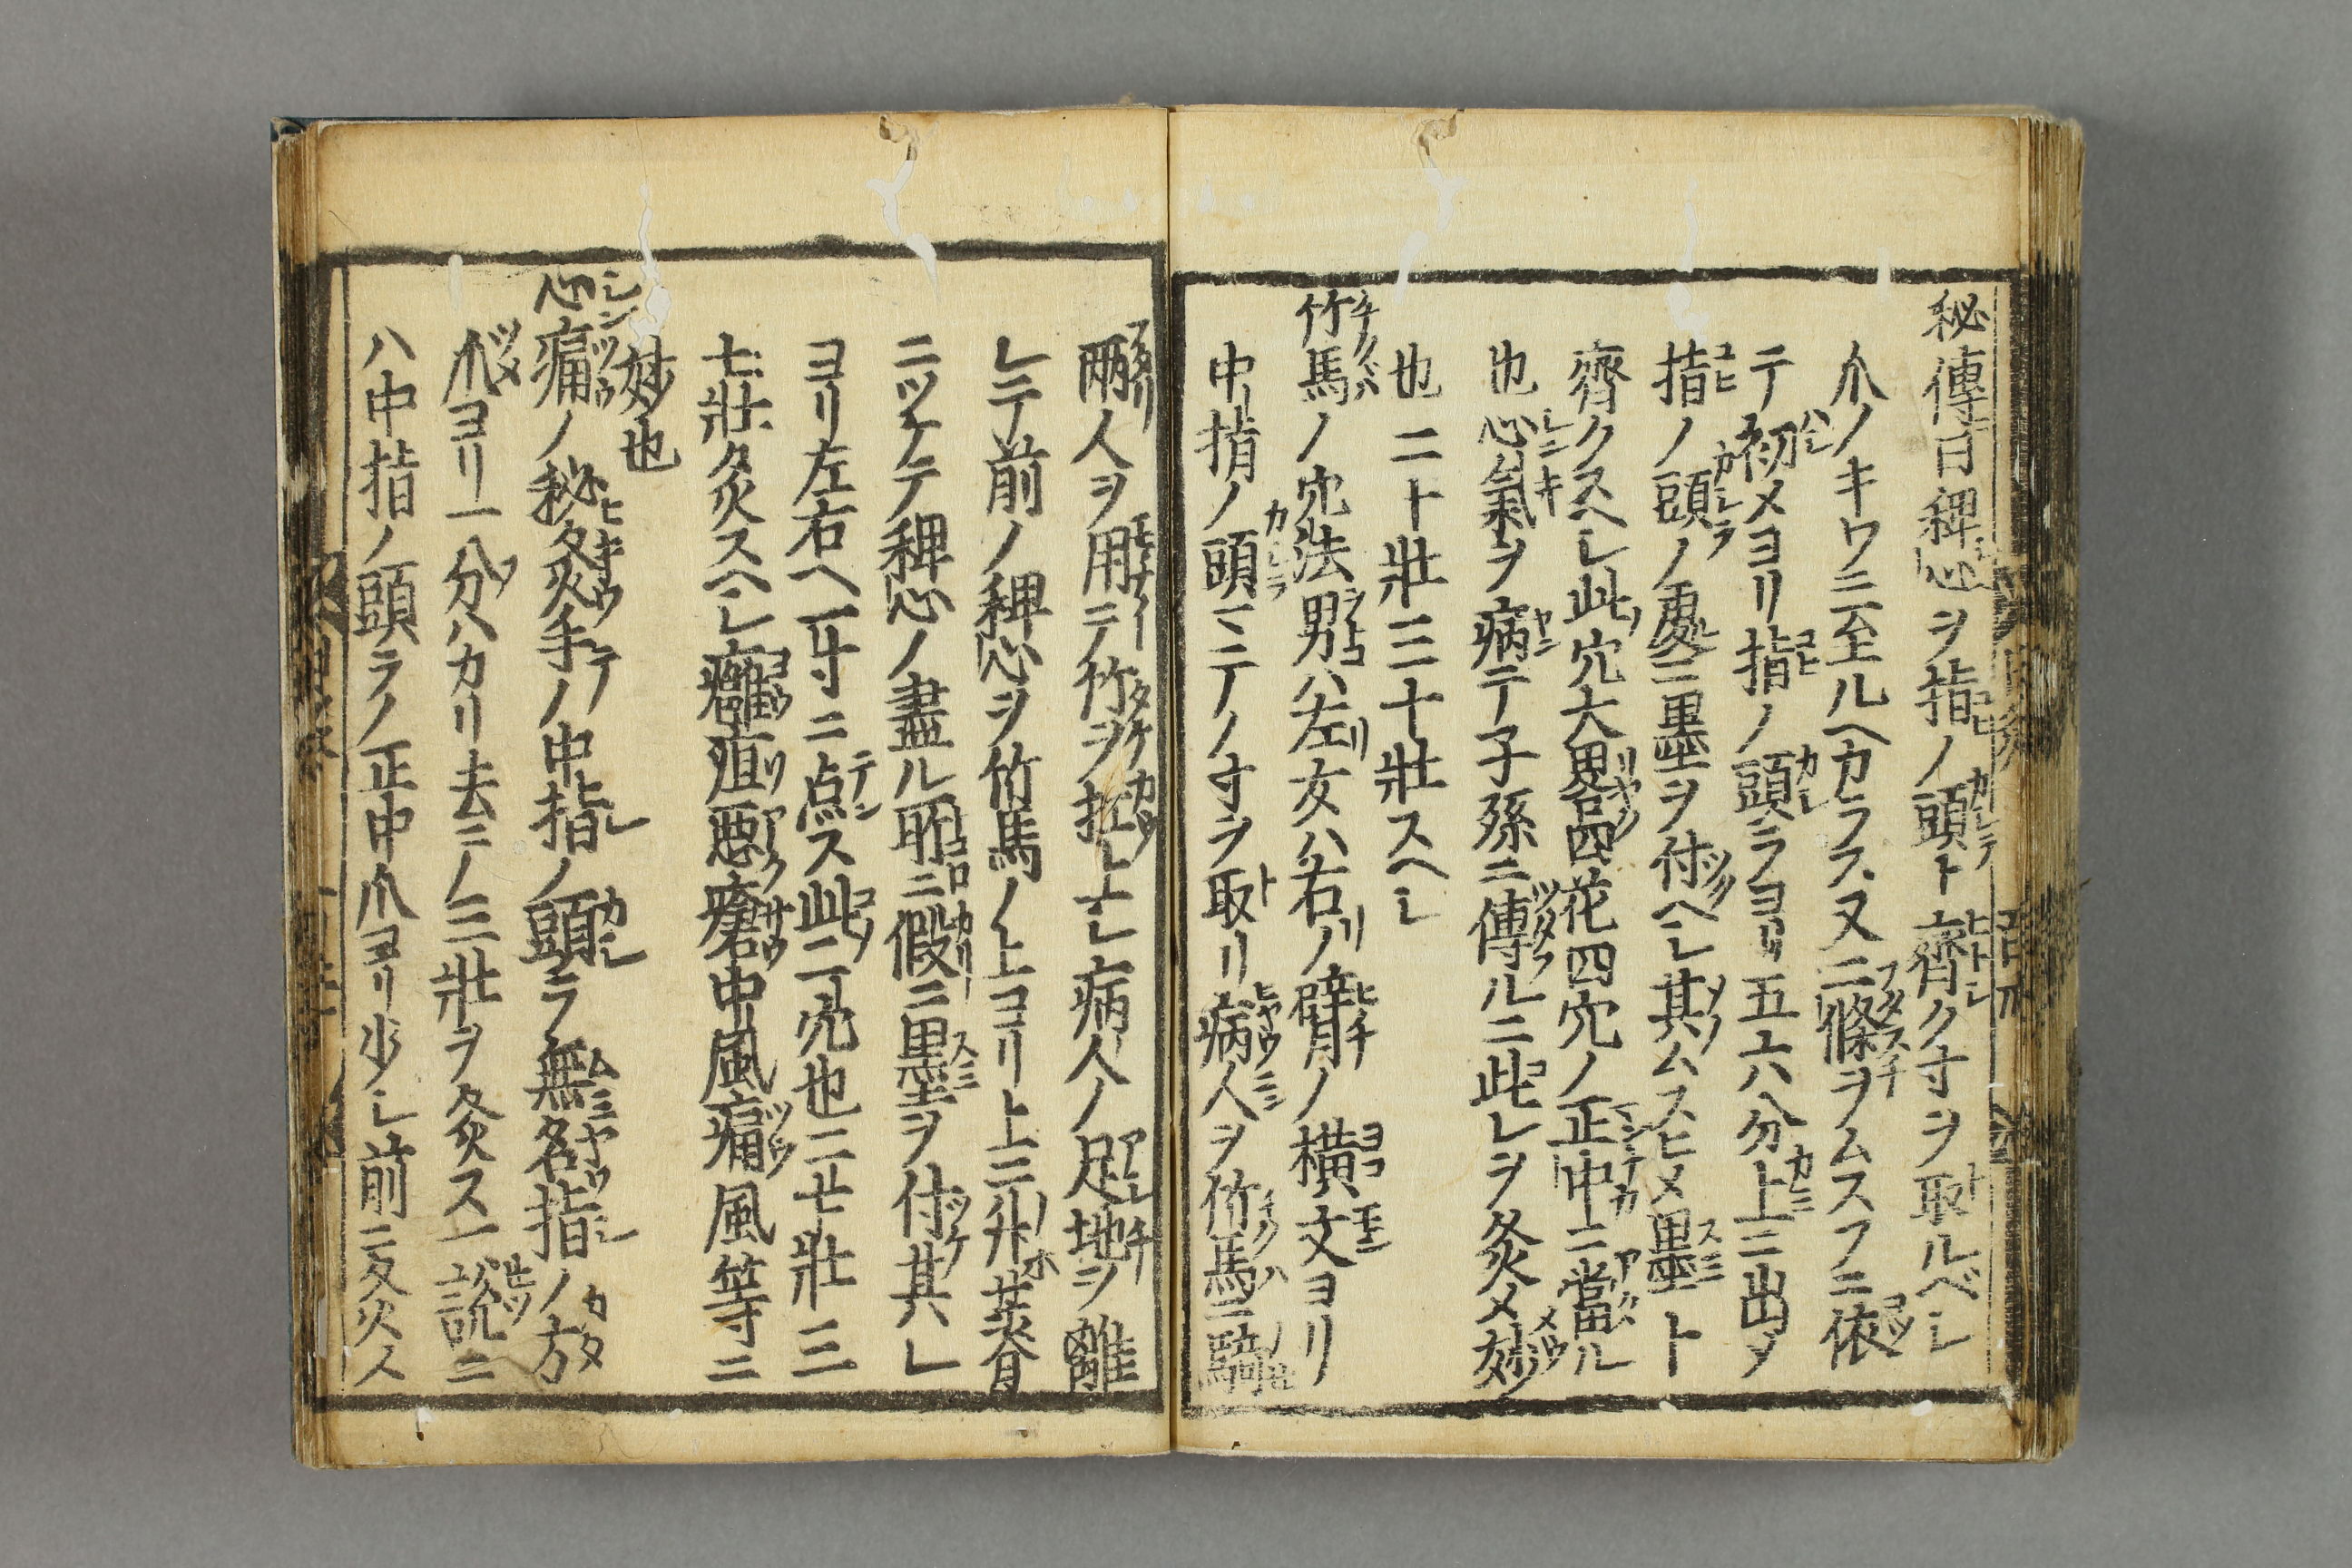 秘傳曰稗心ヲ指ノ頭ト齊ク寸ヲ取ルベシ
爪ノキワニ至ルヘカラス又二條ヲムスフニ依
テ初メヨリ指ノ頭ラヨリ五六分上ニ出タ
指ノ頭ノ處ニ墨ヲ付ヘシ其ムスヒメ墨ト
齊クスヘシ此穴大畧四花四穴ノ正中ニ當ル
也心氣ヲ病テ子孫ニ傳ルニ此レヲ灸メ妙
也二十壯三十壯スヘシ
竹馬ノ穴法男ハ左女ハ右ノ臂ノ横文ヨリ
中指ノ頭マテノ寸ヲ取リ病人ヲ竹馬ニ騎
兩人ヲ用テ竹ヲ扛シ上ヒ病人ノ足地ヲ離
レテ前ノ稗心ヲ竹馬ノ上ヨリ上ニ升テ脊
ニツケテ稗心ノ盡ル所ニ假ニ墨ヲ付其レ
ヨリ左右ヘ一寸ニ点ス此二穴也二七壯三
七壯灸スヘシ癰疽悪瘡中風痛風等ニ
妙也
心痛ノ秘灸手ノ中指ノ頭ラ無名指ノ方
爪ヨリ一分ハカリ去ニノ三壯ヲ灸ス一説ニ
ハ中指ノ頭ラノ正中爪ヨリ少シ前ニ灸ス